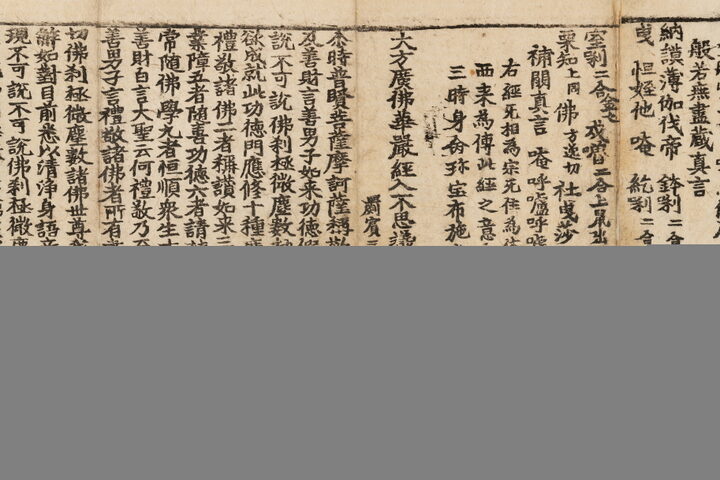 般若無盡藏真言
納謨薄伽伐帝 鉢剌二合
曳 怛姪他 唵 紇剌二合
室剌二合 戍嚕二合上
粟知上同 佛 方逸切 社曳莎
補闕真言 唵呼嚧呼嚧
右經无相為宗无住為
西来為傅此經之意
三時身命弥宝布施
大方廣佛華嚴經入不思議
罽賓
尒時普賢菩薩摩訶薩稱
及善財言善男子如來功德
說不可說佛刹極微塵數劫
欲成就此功德門應修十種
禮敬諸佛二者稱讚如来三
業障五者隨喜功德六者請
常随佛學九者恒順衆生十
善財白言大聖云何禮敬乃至
善男子言禮敬諸佛者所有
切佛刹極微塵數諸佛世尊
解如對目前悉以清淨身語
現不可說不可說佛刹極微塵